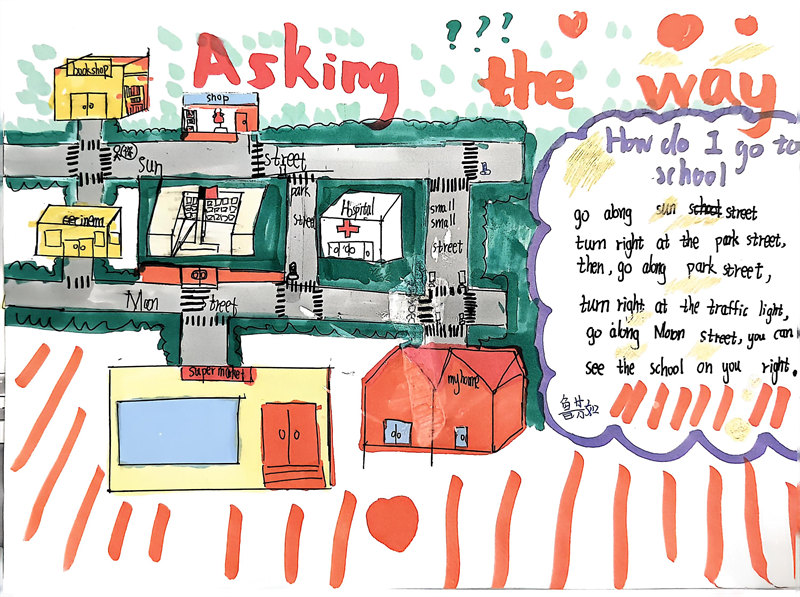 Asking the way
???
bookshop
shop
sun street
park street
Hospital
small small street
cinema
Moon street
supermarket
my home
How do I go to school
go along sun street
turn right at the park street,
then, go along park street,
turn right at the traffic light,
go along Moon street, you can
see the school on you right.